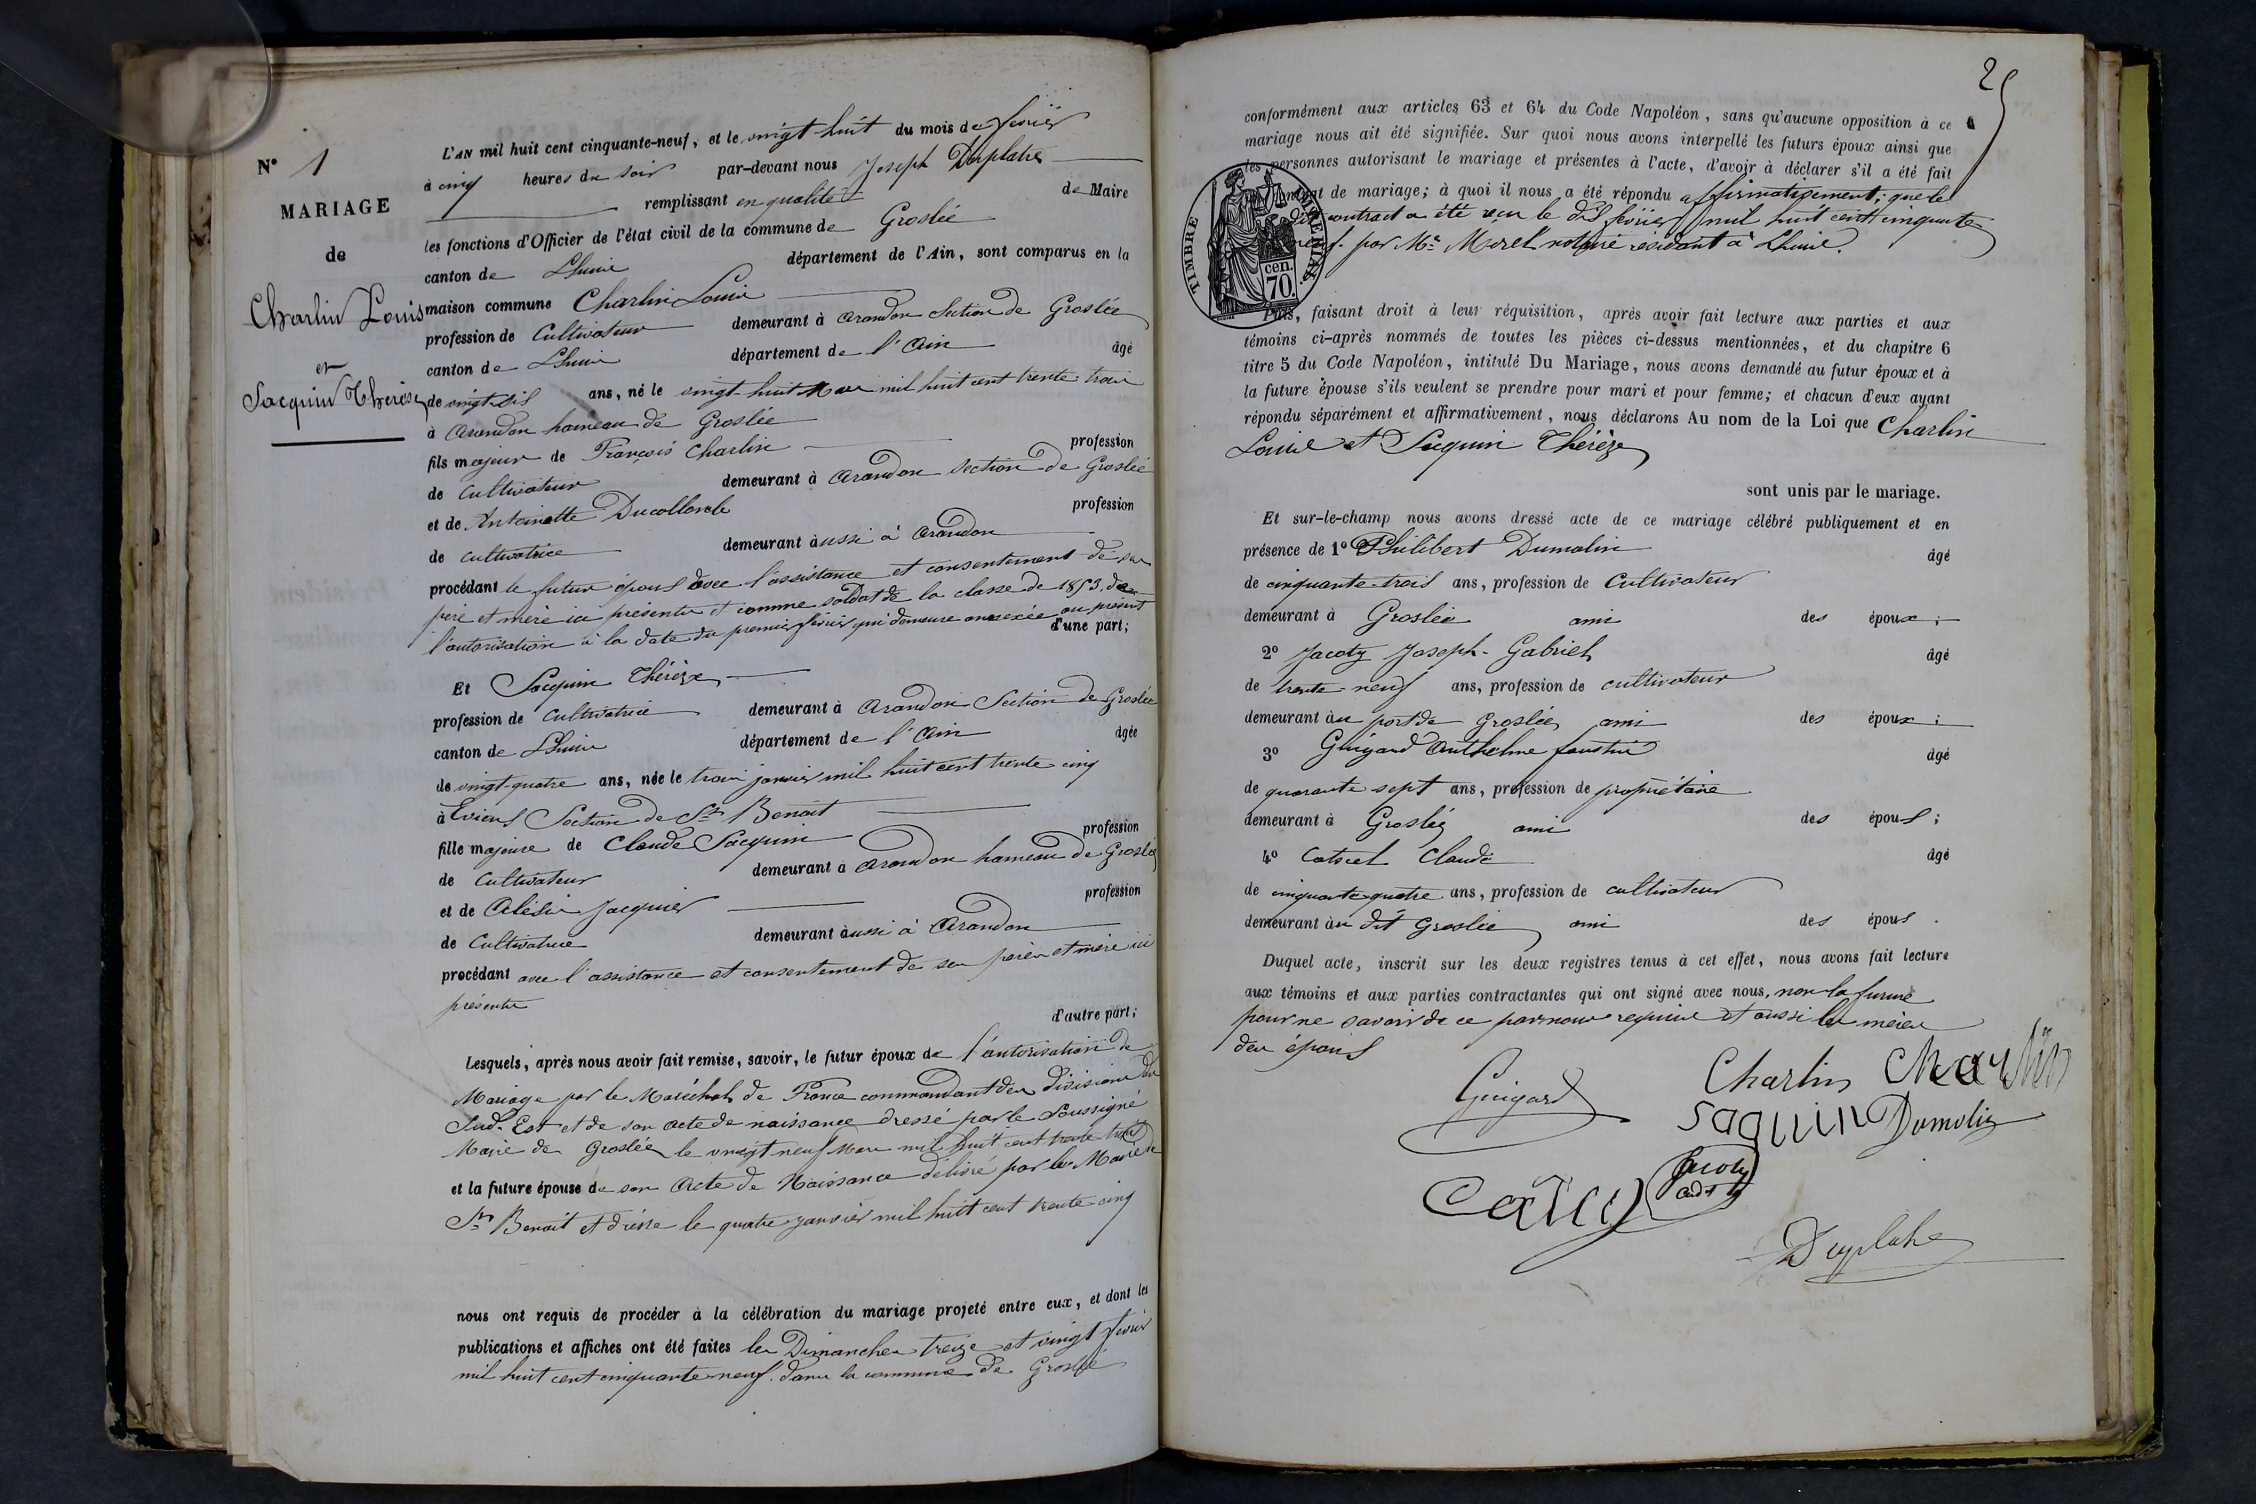 N° 1
MARIAGE
de
Charlin Louis
et
Sacquin Thérèse
L'AN mil huit cent cinquante-neuf, et le vingt huit du mois de fevrier
à cinq heures du soir par-devant nous Joseph Duplatre
remplissant en qualité de Maire
les fonctions d'Officier de l'état civil de la commune de Groslée
canton de Lhuis département de l'Ain, sont comparus en la
maison commune Charlin Louis
profession de Cultivateur demeurant à Arandon Section de Groslée
canton de Lhuis département de l'Ain âgé
de vingt six ans, né le vingt-huit Mars mil huit cent trente trois
à Arandon hameau de Groslée
fils majeur de François Charlin profession
de Cultivateur demeurant à Arandon Section de Groslée
et de Antoinette Ducollomb profession
de cultivatrice demeurant aussi à Arandon
procédant le futur époux avec l'assistance et consentement de ses
père et mère ici présents et comme soldat de la classe de 1853. de
l'autorisation à la date du premier fevrier qui demeure annexée au présent
d'une part;
Et Sacquin Thérèze
profession de Cultivatrice demeurant à Arandon Section de Groslée
canton de Lhuis département de l'Ain âgée
de vingt-quatre ans, née le trois janvier mil huit cent trente cinq
à Evieux Section de St Benoit
fille majeure de Claude Sacquin profession
de Cultivateur demeurant à Arandon hameau de Groslée
et de Jacquier profession
de Cultivatrice demeurant aussi à Arandon
procédant avec l'assistance et consentement de ses père et mère ici
présents
d'autre part;
Lesquels, après nous avoir fait remise, savoir, le futur époux de l'autorisation de
Mariage par le Maréchal de France commandant des divisions du
Sud-Est et de son acte de naissance dressé par le Soussigné
Maire de Groslée le vingt neuf Mars mil huit cent trente trois
et la future épouse de son Acte de Naissance délivré par le Maire de
St Benoit et dressé le quatre janvier mil huit cent trente cinq
nous ont requis de procéder à la célébration du mariage projeté entre eux, et dont les
publications et affiches ont été faites les Dimanches treize et vingt fevrier
mil huit cent cinquante-neuf. dans la commune de Groslée
2
conformément aux articles 63 et 64 du Code Napoléon, sans qu'aucune opposition à ce
mariage nous ait été signifiée. Sur quoi nous avons interpellé les futurs époux ainsi que
les personnes autorisant le mariage et présentes à l'acte, d'avoir à déclarer s'il a été fait
contrat de mariage; à quoi il nous a été répondu affirmativement; que le
dit contract a été reçu le dix fevrier mil huit cent cinquante-
neuf. par Me Morel notaire residant à Lhuis.
TIMBRE IMPERIAL
70 cen.
Puis, faisant droit à leur réquisition, après avoir fait lecture aux parties et aux
témoins ci-après nommés de toutes les pièces ci-dessus mentionnées, et du chapitre 6
titre 5 du Code Napoléon, intitulé Du Mariage, nous avons demandé au futur époux et à
la future épouse s'ils veulent se prendre pour mari et pour femme; et chacun d'eux ayant
répondu séparément et affirmativement, nous déclarons Au nom de la Loi que Charlin
Louis et Sacquin Thérèze
sont unis par le mariage.
Et sur-le-champ nous avons dressé acte de ce mariage célébré publiquement et en
présence de 1° Philibert Dumolin âgé
de cinquante-trois ans, profession de Cultivateur
demeurant à Groslée ami des époux;
2° Jacoty Joseph-Gabriel âgé
de trente-neuf ans, profession de cultivateur
demeurant au port de Groslée ami des époux;
3° Guigard Anthelme faustin âgé
de quarante sept ans, profession de propriétaire
demeurant à Groslée ami des époux;
4° Claude âgé
de cinquante-quatre ans, profession de cultivateur
demeurant au dit Groslée ami des époux.
Duquel acte, inscrit sur les deux registres tenus à cet effet, nous avons fait lecture
aux témoins et aux parties contractantes qui ont signé avec nous, non la future
pour ne savoir de ce par nous requise et aussi les mères
des époux
Guigard Charlin Charlin
saquin Dumolin
Jacoty
Duplatre